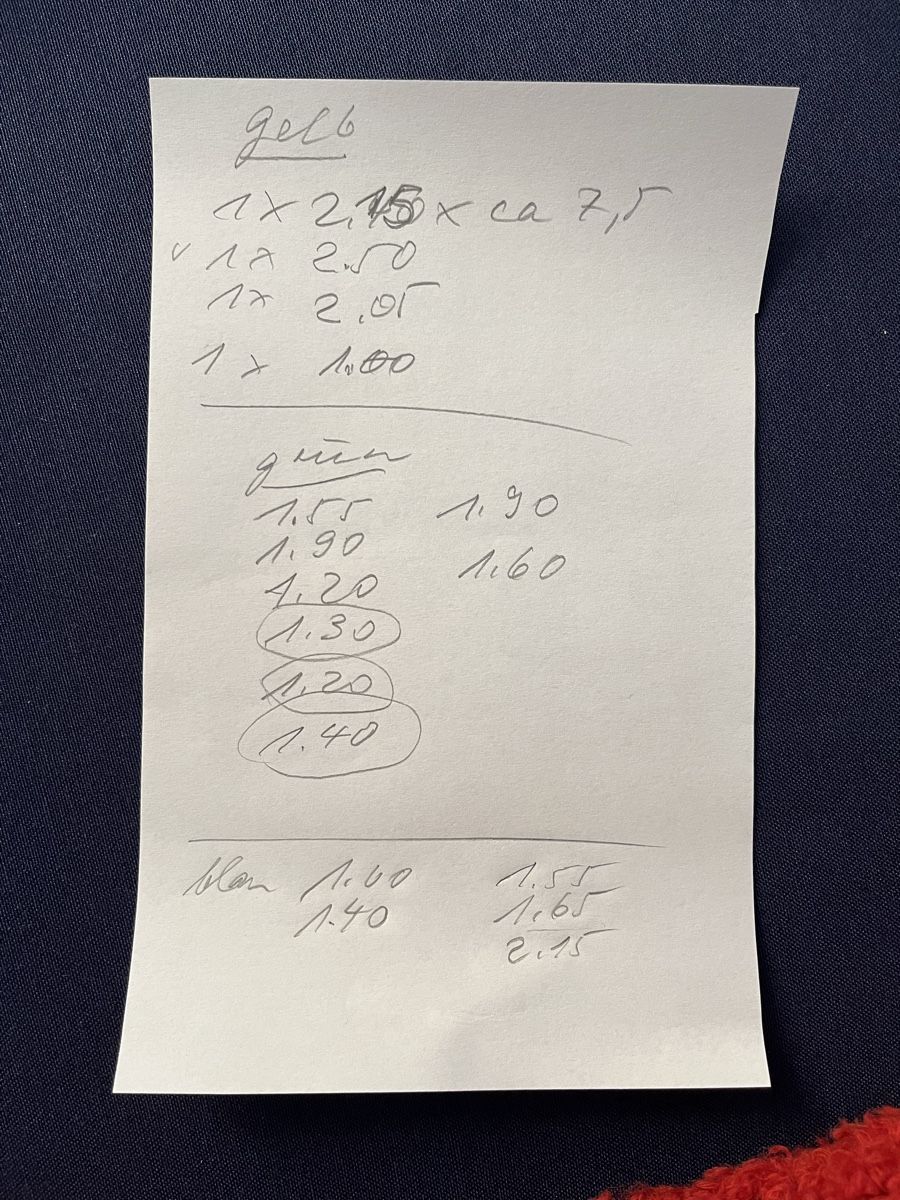 gelb
1 x 2.15 x ca 7,5
✓ 1 x 2.50
1 x 2.05
1 x 1.00
grün
1.55 1.90
1.90
1.20 1.60
1.30
1.20
1.40
blau 1.60 1.55
1.40 1.65
2.15